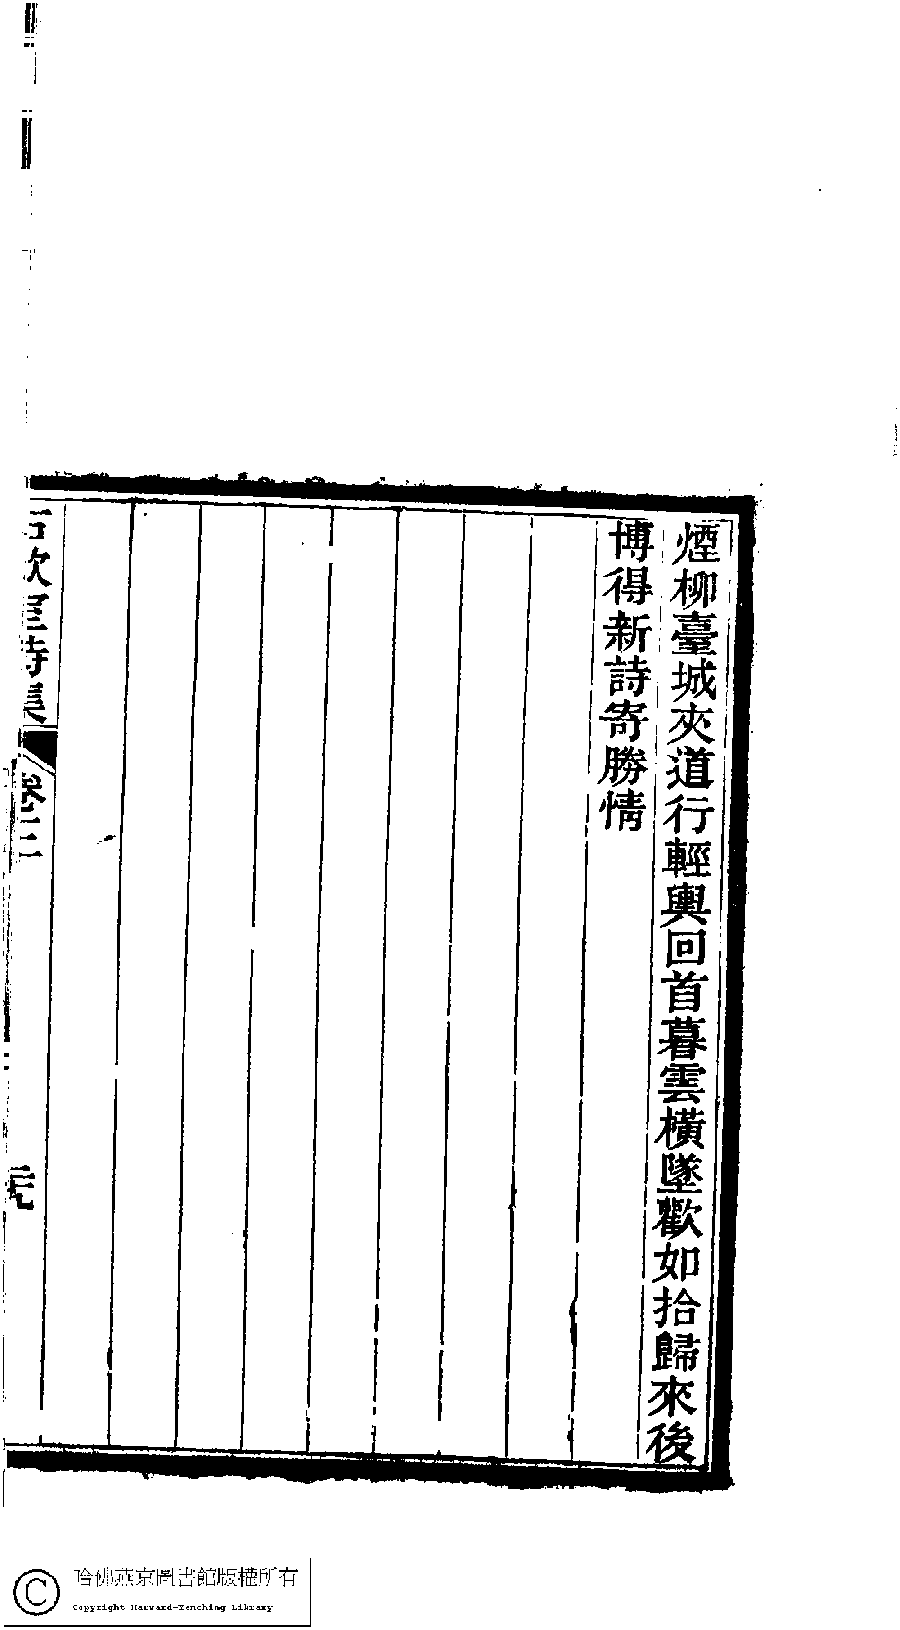 煙柳臺城夾道行輕輿回首暮雲橫墜歡如拾歸來後
博得新詩寄勝情
詩集
卷二
元
哈佛燕京圖書館版權所有
Copyright Harvard-Yenching Library